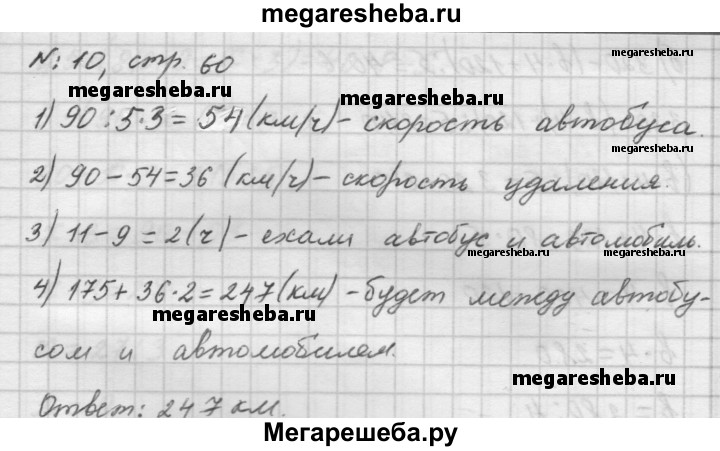 megaresheba.ru
№: 10, стр. 60
megaresheba.ru
megaresheba.ru
megaresheba.ru
1) 90 : 5 · 3 = 54 (км/ч) - скорость автобуса.
megaresheba.ru
2) 90 - 54 = 36 (км/ч) - скорость удаления.
3) 11 - 9 = 2 (ч) - ехали автобус и автомобиль.
megaresheba.ru
4) 175 + 36 · 2 = 247 (км) - будет между автобу-
megaresheba.ru
сом и автомобилем.
megaresheba.ru
Ответ: 247 км.
Мегарешеба.ру